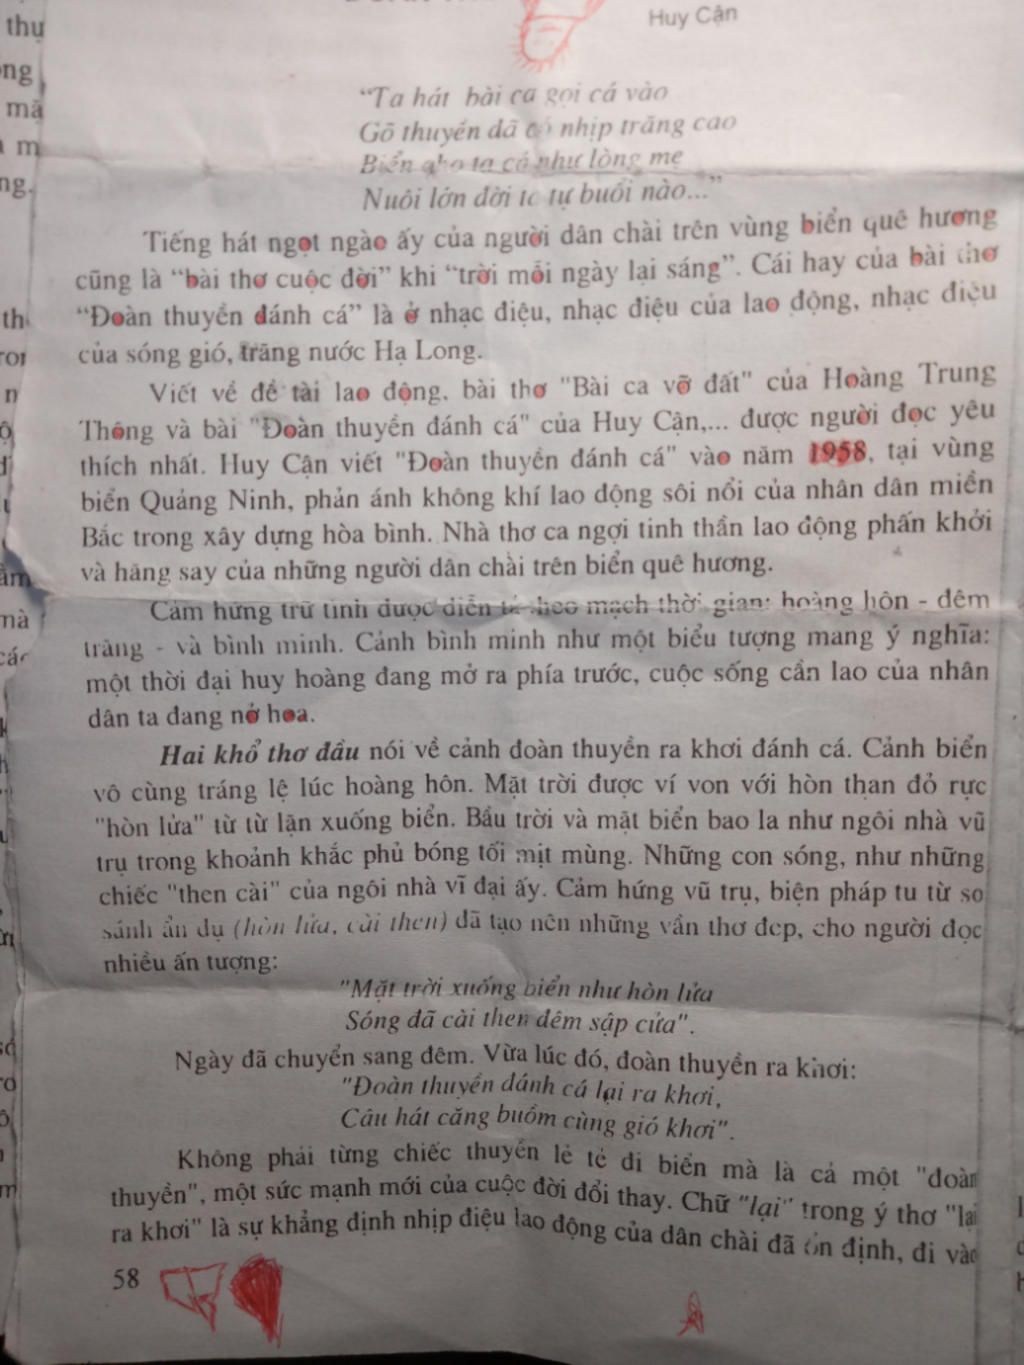 Huy Cận
"Ta hát bài ca gọi cá vào
Gõ thuyền đã có nhịp trăng cao
Biển cho ta cá như lòng mẹ
Nuôi lớn đời ta tự buổi nào..."
Tiếng hát ngọt ngào ấy của người dân chài trên vùng biển quê hương
cũng là "bài thơ cuộc đời" khi "trời mỗi ngày lại sáng". Cái hay của bài thơ
"Đoàn thuyền đánh cá" là ở nhạc điệu, nhạc điệu của lao động, nhạc điệu
của sóng gió, trăng nước Hạ Long.
Viết về đề tài lao động, bài thơ "Bài ca vỡ đất" của Hoàng Trung
Thông và bài "Đoàn thuyền đánh cá" của Huy Cận,... được người đọc yêu
thích nhất. Huy Cận viết "Đoàn thuyền đánh cá" vào năm 1958, tại vùng
biển Quảng Ninh, phản ánh không khí lao động sôi nổi của nhân dân miền
Bắc trong xây dựng hòa bình. Nhà thơ ca ngợi tinh thần lao động phấn khởi
và hăng say của những người dân chài trên biển quê hương.
Cảm hứng trữ tình được diễn tả theo mạch thời gian: hoàng hôn - đêm
trăng - và bình minh. Cảnh bình minh như một biểu tượng mang ý nghĩa:
một thời đại huy hoàng đang mở ra phía trước, cuộc sống cần lao của nhân
dân ta đang nở hoa.
Hai khổ thơ đầu nói về cảnh đoàn thuyền ra khơi đánh cá. Cảnh biển
vô cùng tráng lệ lúc hoàng hôn. Mặt trời được ví von với hòn than đỏ rực
"hòn lửa" từ từ lặn xuống biển. Bầu trời và mặt biển bao la như ngôi nhà vũ
trụ trong khoảnh khắc phủ bóng tối mịt mùng. Những con sóng, như những
chiếc "then cài" của ngôi nhà vĩ đại ấy. Cảm hứng vũ trụ, biện pháp tu từ so
sánh ẩn dụ (hòn lửa, cài then) đã tạo nên những vần thơ đẹp, cho người đọc
nhiều ấn tượng:
"Mặt trời xuống biển như hòn lửa
Sóng đã cài then đêm sập cửa".
Ngày đã chuyển sang đêm. Vừa lúc đó, đoàn thuyền ra khơi:
"Đoàn thuyền đánh cá lại ra khơi,
Câu hát căng buồm cùng gió khơi".
Không phải từng chiếc thuyền lẻ tẻ đi biển mà là cả một "đoàn
thuyền", một sức mạnh mới của cuộc đời đổi thay. Chữ "lại" trong ý thơ "lại
ra khơi" là sự khẳng định nhịp điệu lao động của dân chài đã ổn định, đi vào
58